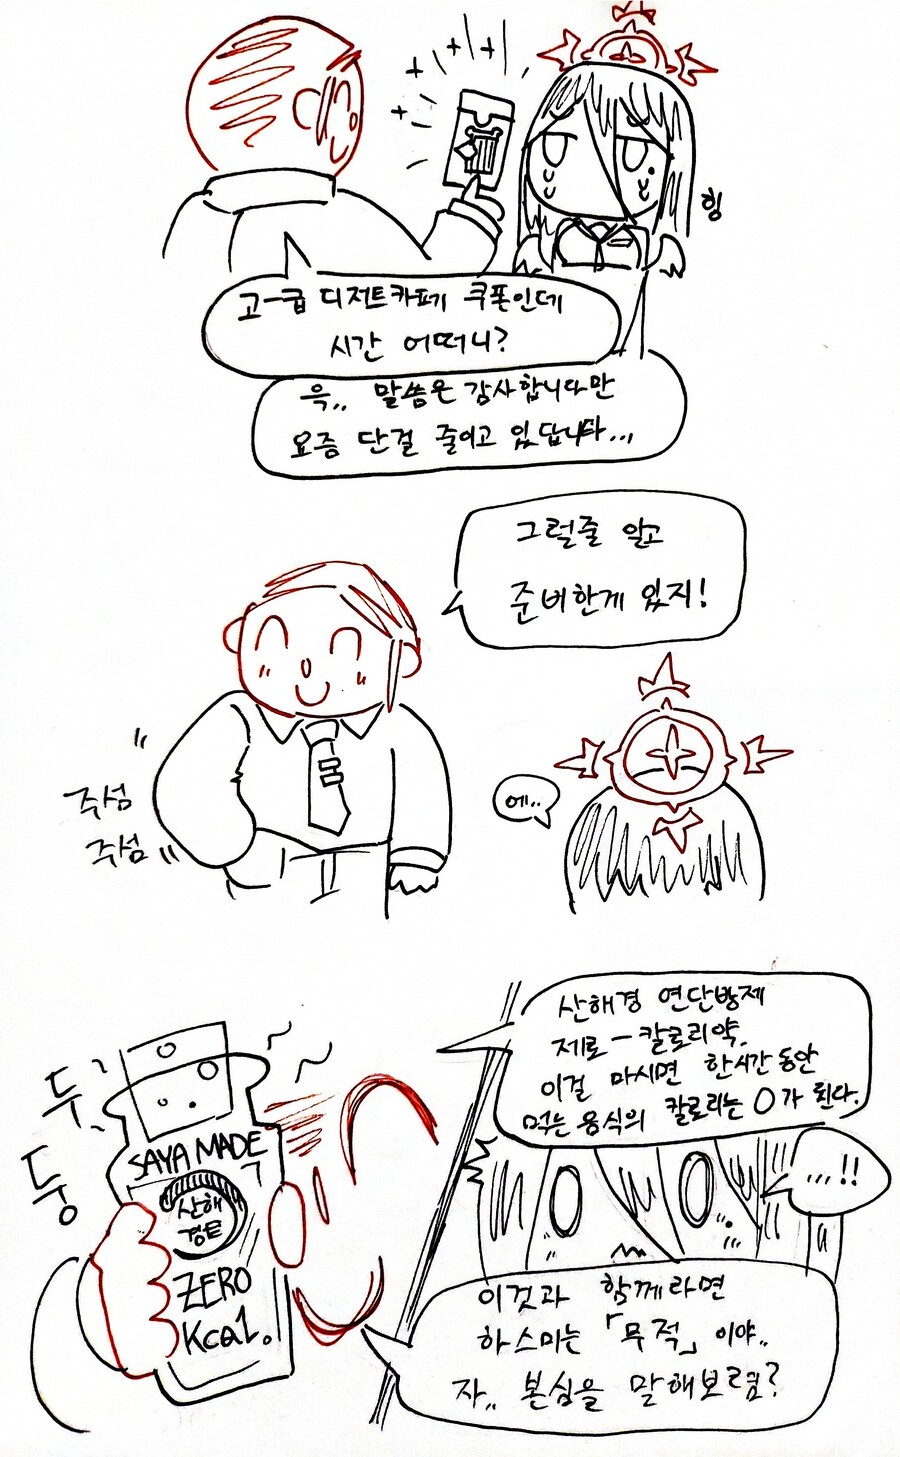 힝
고-급 디저트카페 쿠폰인데
시간 어떠니?
윽.. 말씀은 감사합니다만
요즘 단걸 줄이고 있답니다...
그럴줄 알고
준비한게 있지!
몸
주섬
주섬
에..
산해경 연단방제
제로-칼로리약.
이걸 마시면 한시간동안
먹는 음식의 칼로리는 0가 된다.
두
둥
SAYA MADE
산해
경은
ZERO
Kcal.
...!!
이것과 함께라면
하스미는 「무적」이야..
자.. 본심을 말해보렴?